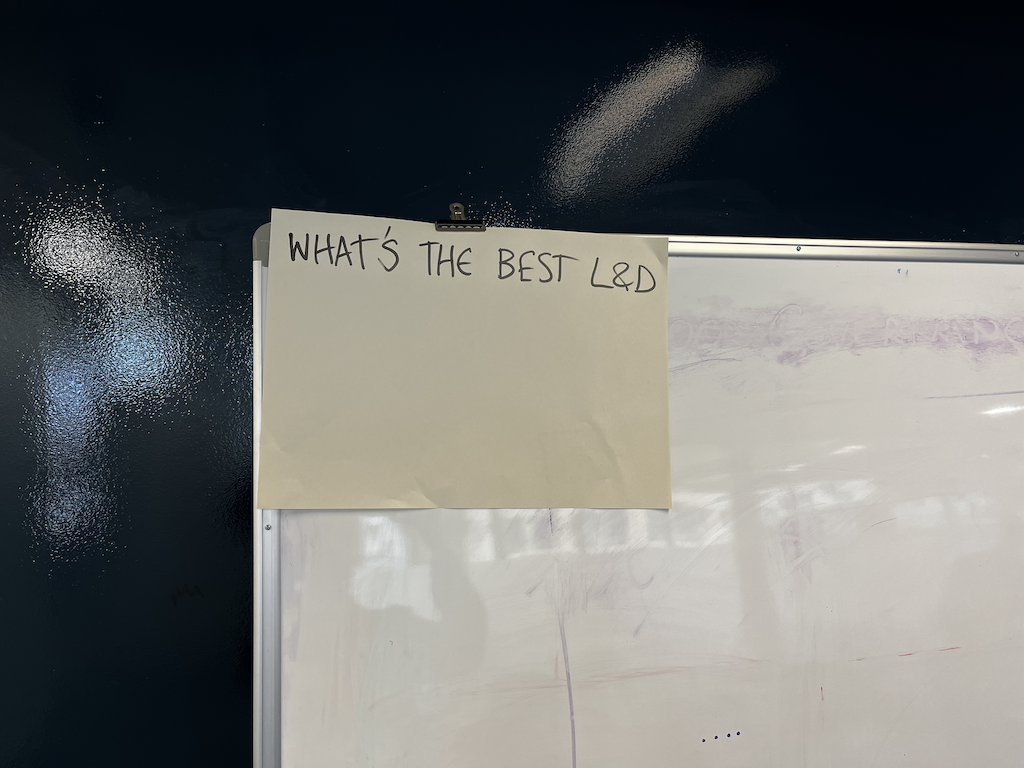 WHAT'S THE BEST L&D